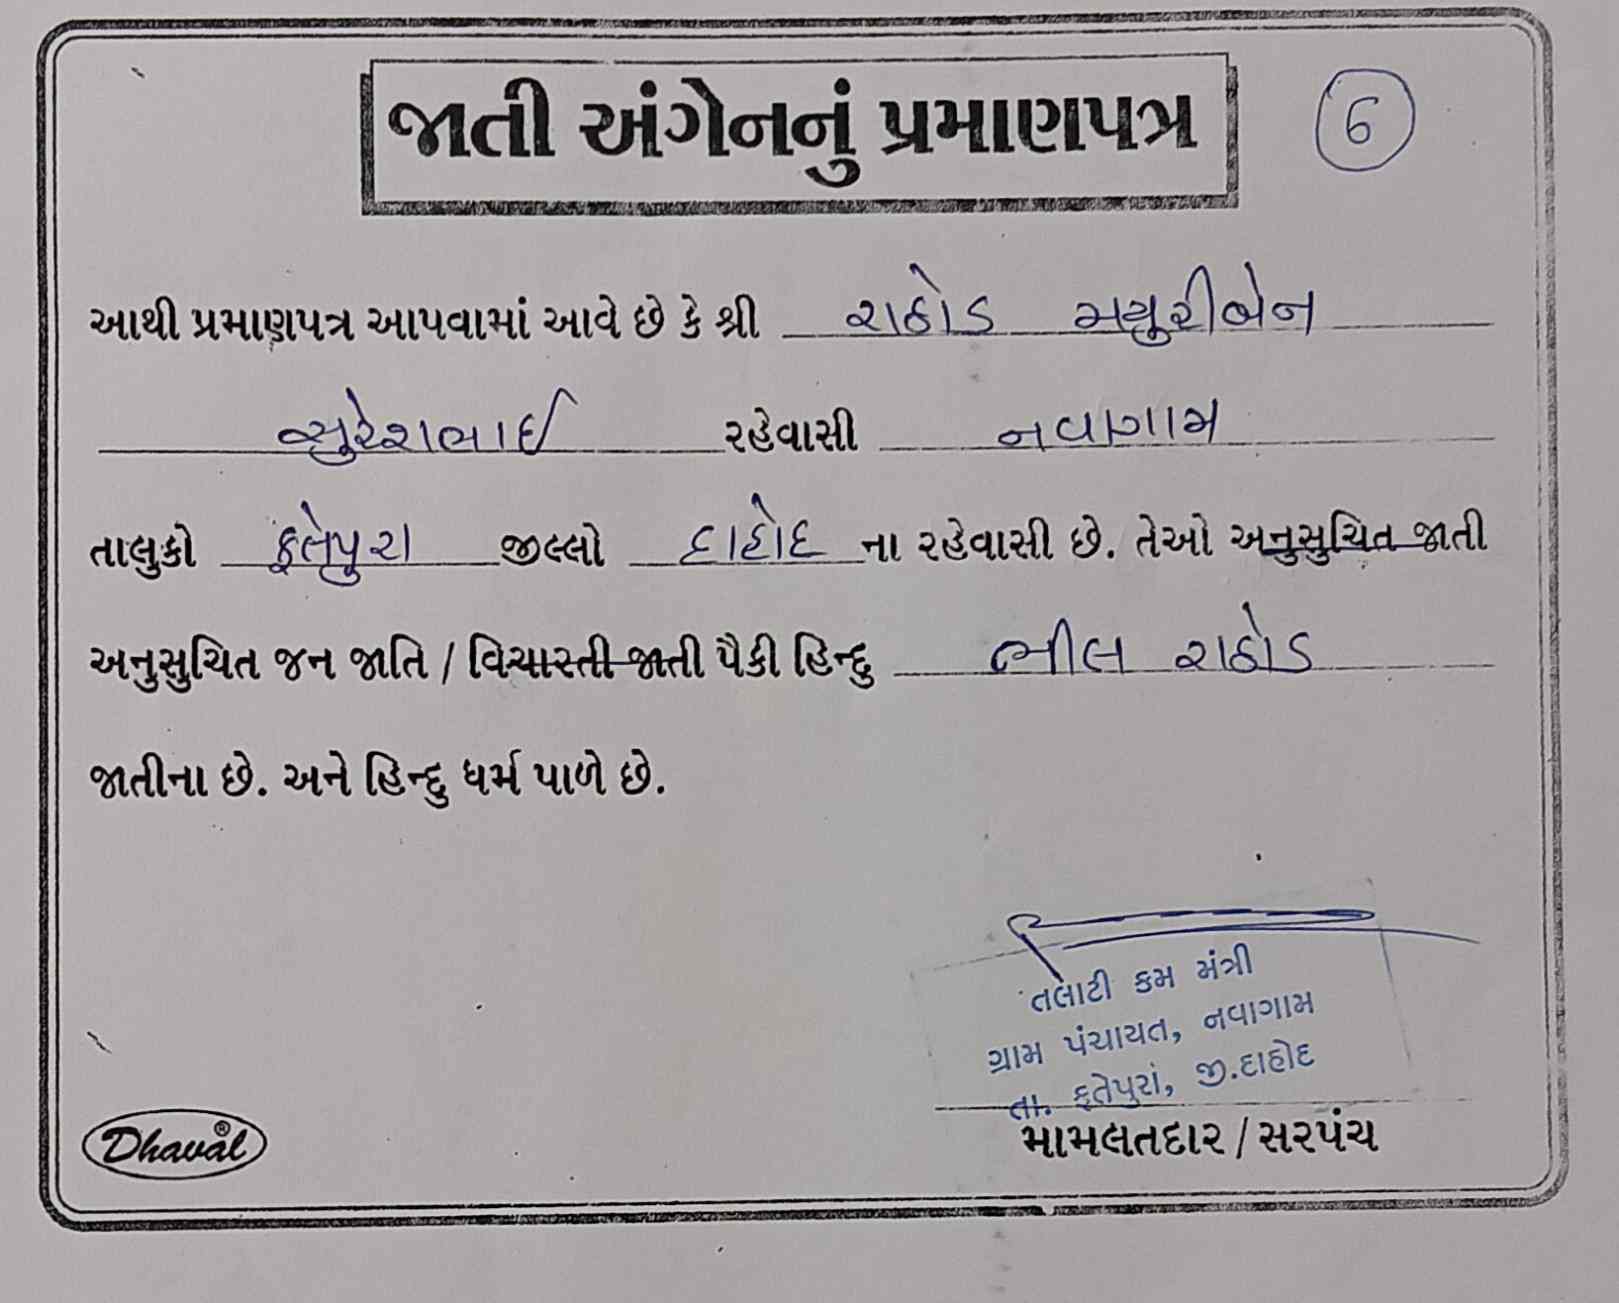 જાતી અંગેનનું પ્રમાણપત્ર
6
આથી પ્રમાણપત્ર આપવામાં આવે છે કે શ્રી રાઠોડ મયુરીબેન
સુરેશભાઈ રહેવાસી નવાગામ
તાલુકો ફતેપુરા જીલ્લો દાહોદ ના રહેવાસી છે. તેઓ અનુસુચિત જાતી
અનુસુચિત જન જાતિ / વિચાસ્તી જાતી પૈકી હિન્દુ ભીલ રાઠોડ
જાતીના છે. અને હિન્દુ ધર્મ પાળે છે.
તલાટી કમ મંત્રી
ગ્રામ પંચાયત, નવાગામ
તા. ફતેપુરાં, જી.દાહોદ
મામલતદાર / સરપંચ
Dhaval®